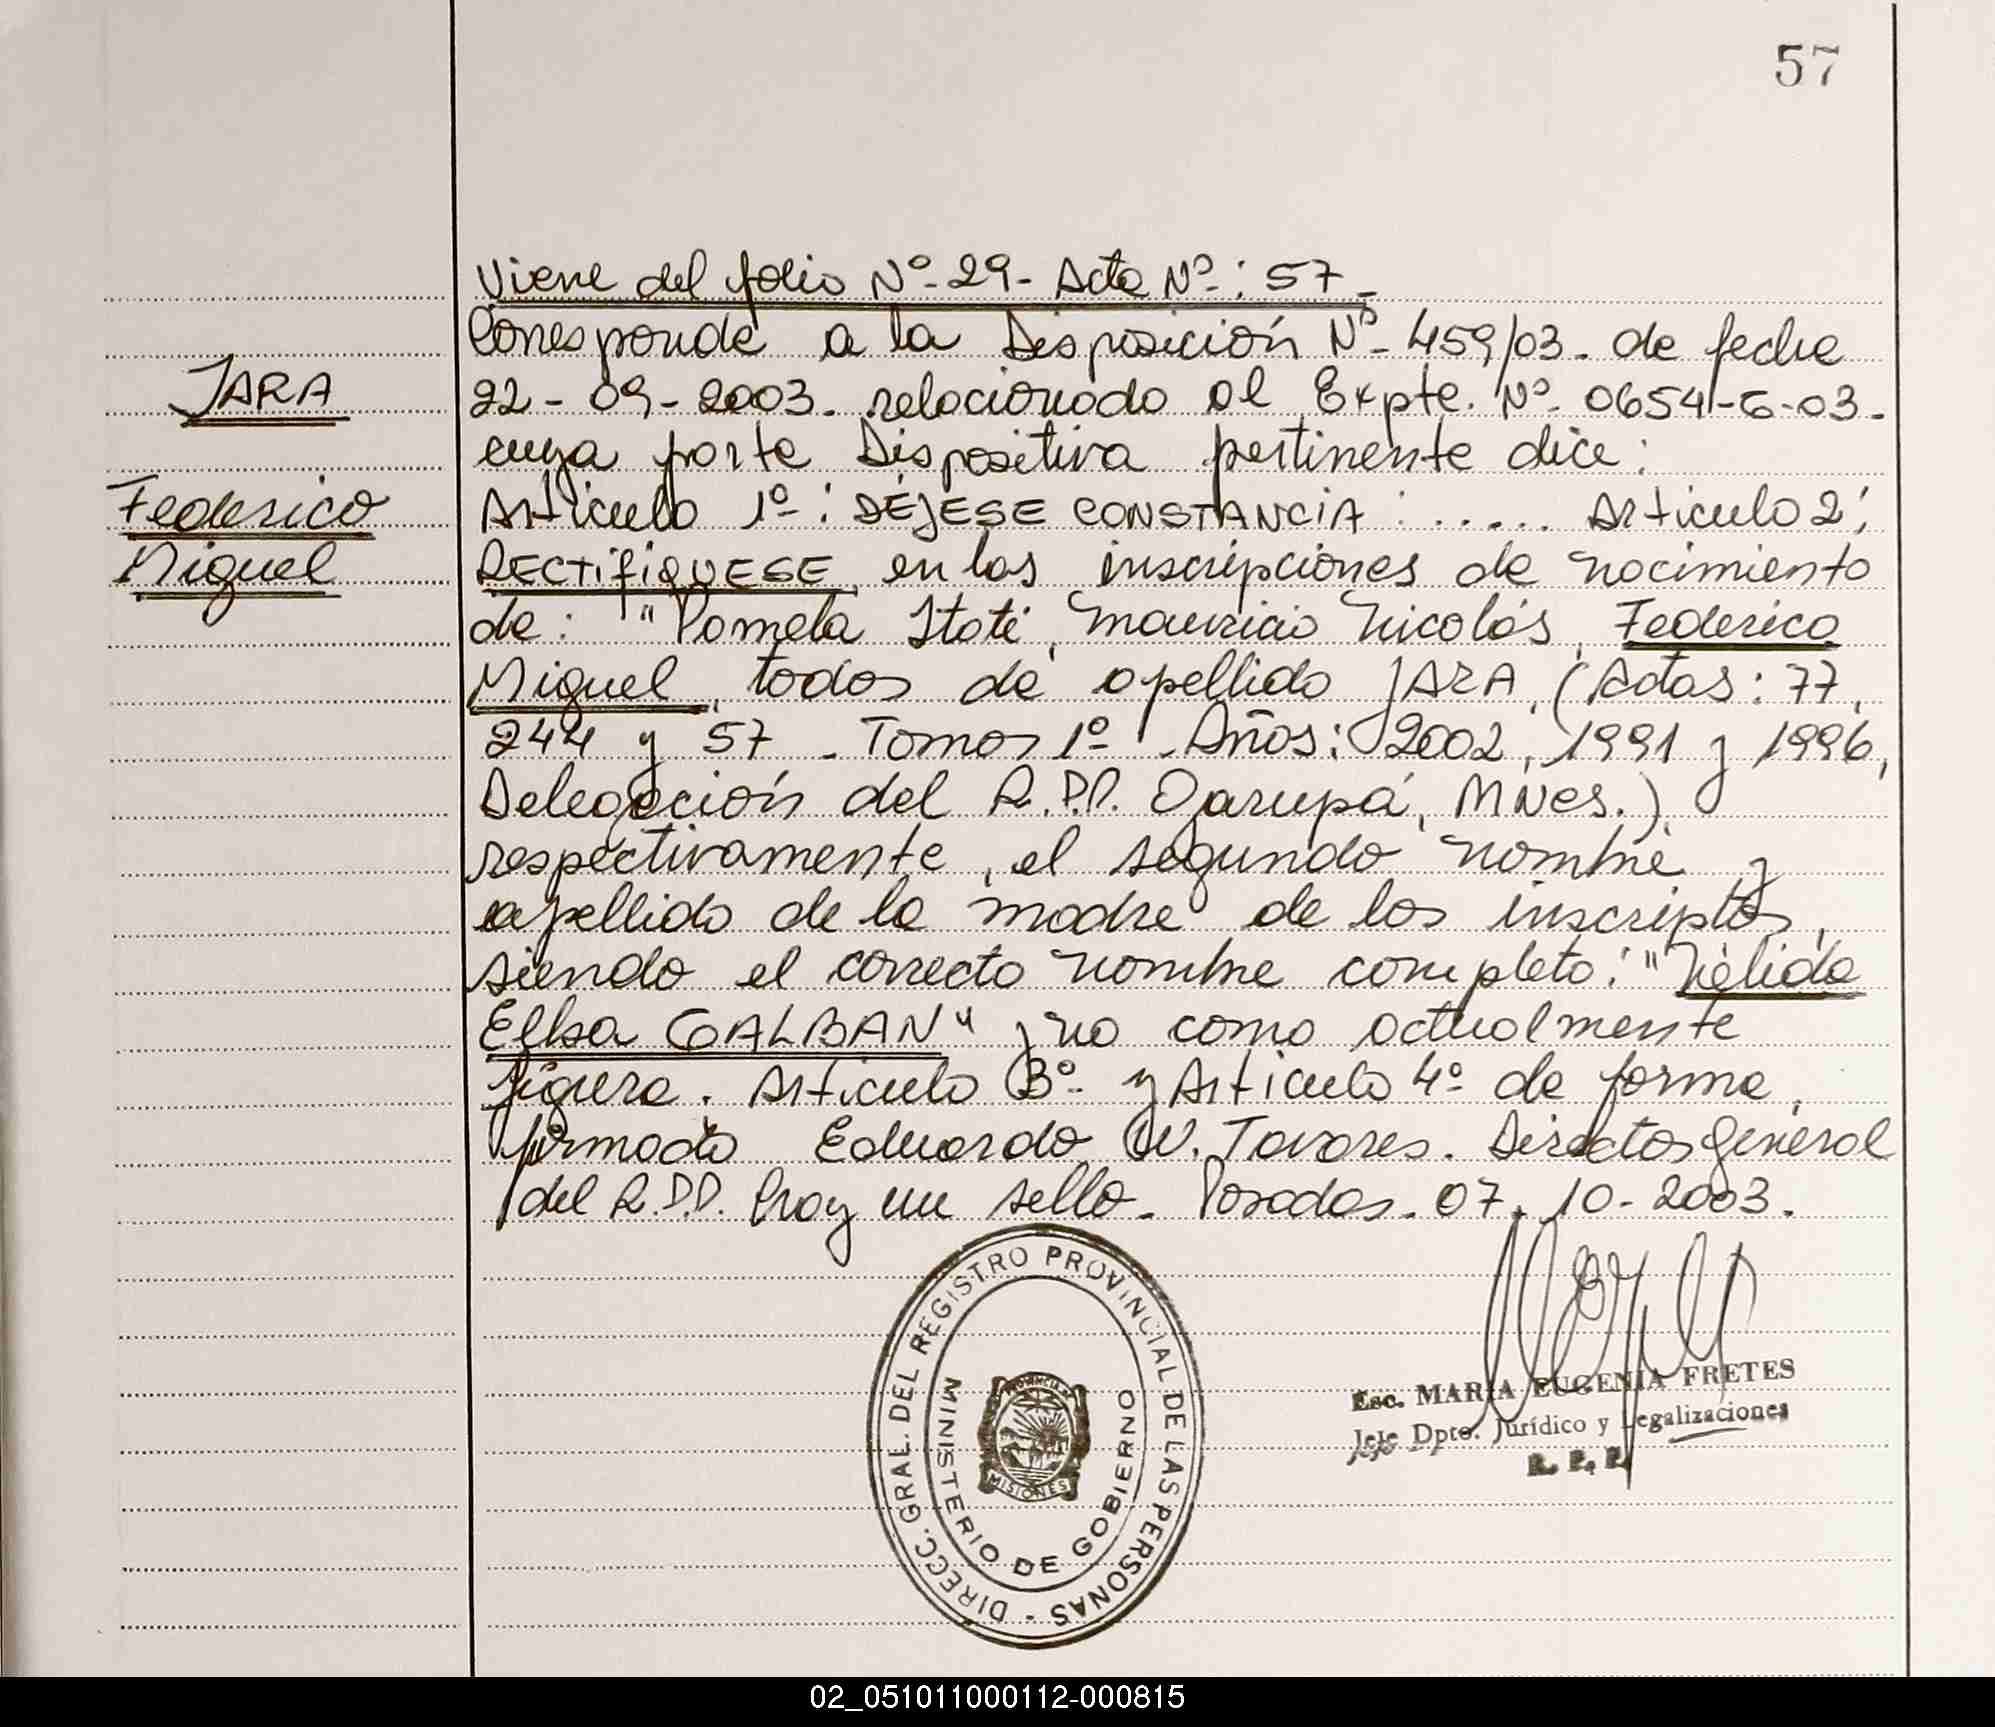 57
Viene del folio Nº 29 - Acta Nº: 57 -
Corresponde a la Disposición Nº - 459/03 - de fecha
JARA
22 - 09 - 2003 - relacionado al Expte. Nº - 0654-G-03 -
cuya parte Dispositiva pertinente dice:
Federico
Articulo 1º: DÉJESE CONSTANCIA: ..... Articulo 2:
Miguel
RECTIFIQUESE, en las inscripciones de nacimiento
de: "Pamela Itatí, Mauricio Nicolás, Federico
Miguel, todos de apellido JARA, (Actas: 77,
244 y 57 - Tomos 1º - Años: 2002, 1991 y 1996,
Delegación del R.P.P. Garupá, MNes.)
respectivamente, el segundo nombre y
apellido de la madre de los inscriptos,
siendo el correcto nombre completo: "Nélida
Elba GALBAN" y no como actualmente
figura. Articulo 3º - y Articulo 4º de forma,
firmado Eduardo W. Tavares. Director General
del R.P.P. Hay un sello - Posadas - 07 - 10 - 2003.
DIRECC. GRAL. DEL REGISTRO PROVINCIAL DE LAS PERSONAS -
MINISTERIO DE GOBIERNO
MISIONES
Esc. MARIA EUGENIA FRETES
Jefe Dpto. Jurídico y Legalizaciones
R. P. P.
02_051011000112-000815